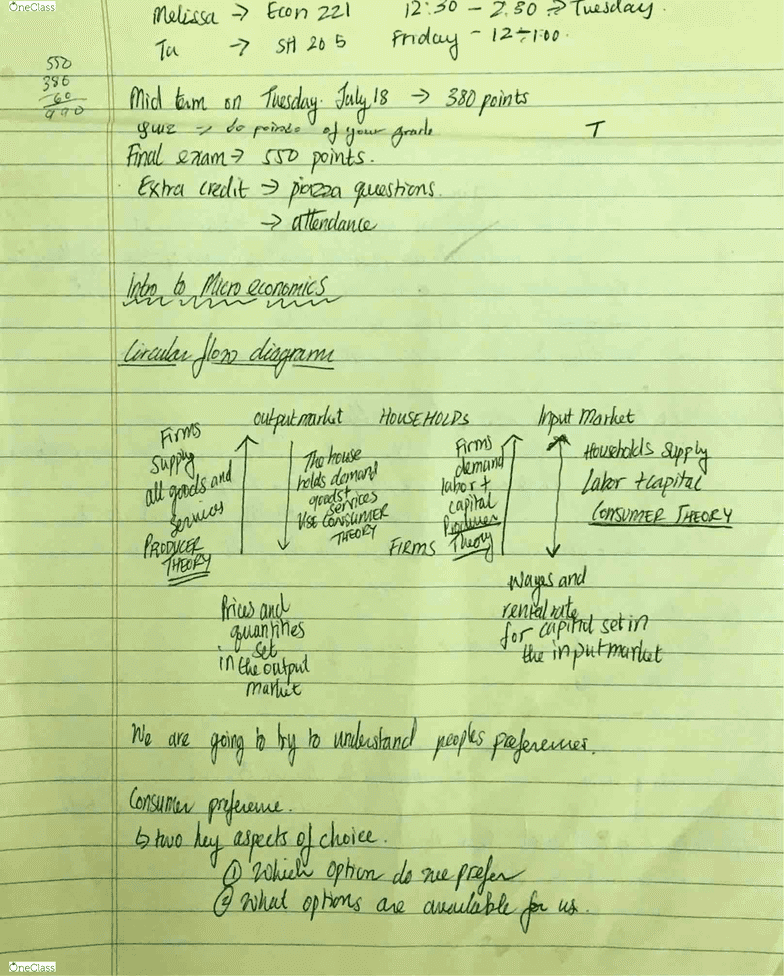 OneClass
Melissa → Econ 221 12:30 - 2:30 → Tuesday.
Ta → SH 205 Friday - 12-1:00.
550
386
60
990
Mid term on Tuesday July 18 → 380 points
quiz → 60 points of your grade
T
Final exam → 550 points.
Extra credit → piazza questions.
→ attendance
Intro to Micro economics
Circular flow diagrams
output market HOUSEHOLDS Input Market
Firms
supply
all goods and
services
PRODUCER
THEORY
The house
holds demand
goods +
services
USE CONSUMER
THEORY
FIRMS
Firms
demand
labor +
capital
Producer
Theory
Households supply
Labor + capital
CONSUMER THEORY
Prices and
quantities
set
in the output
market
Wages and
rental rate
for capital set in
the input market
We are going to try to understand peoples preferences.
Consumer preference.
↳ two key aspects of choice.
① Which option do we prefer
② What options are available for us.
OneClass